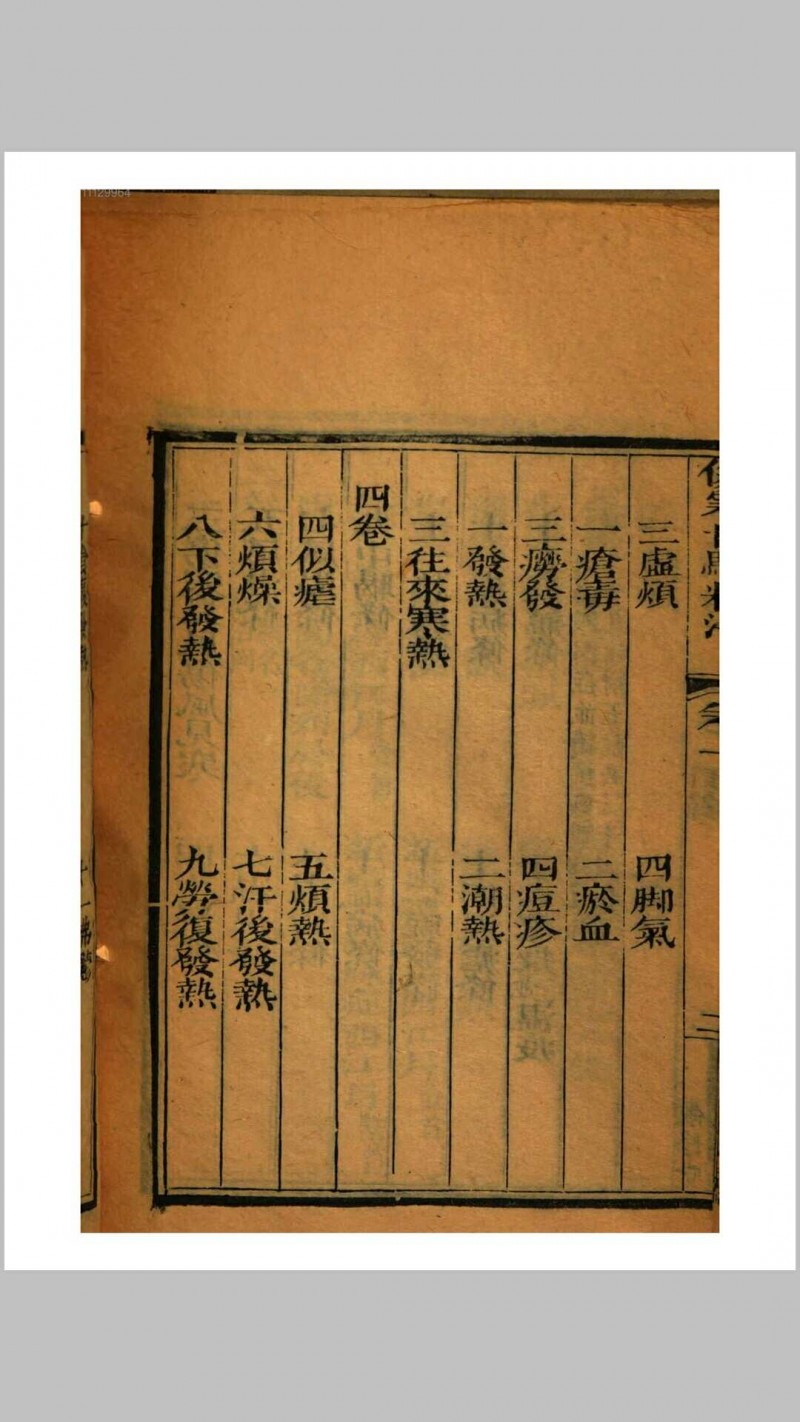 11129964
三虛煩 四脚氣
一瘡毒 二瘀血
三癆發 四痘疹
一發熱 二潮熱
三往來寒熱
四卷
四似瘧 五煩熱
六煩燥 七汗後發熱
八下後發熱 九勞復發熱